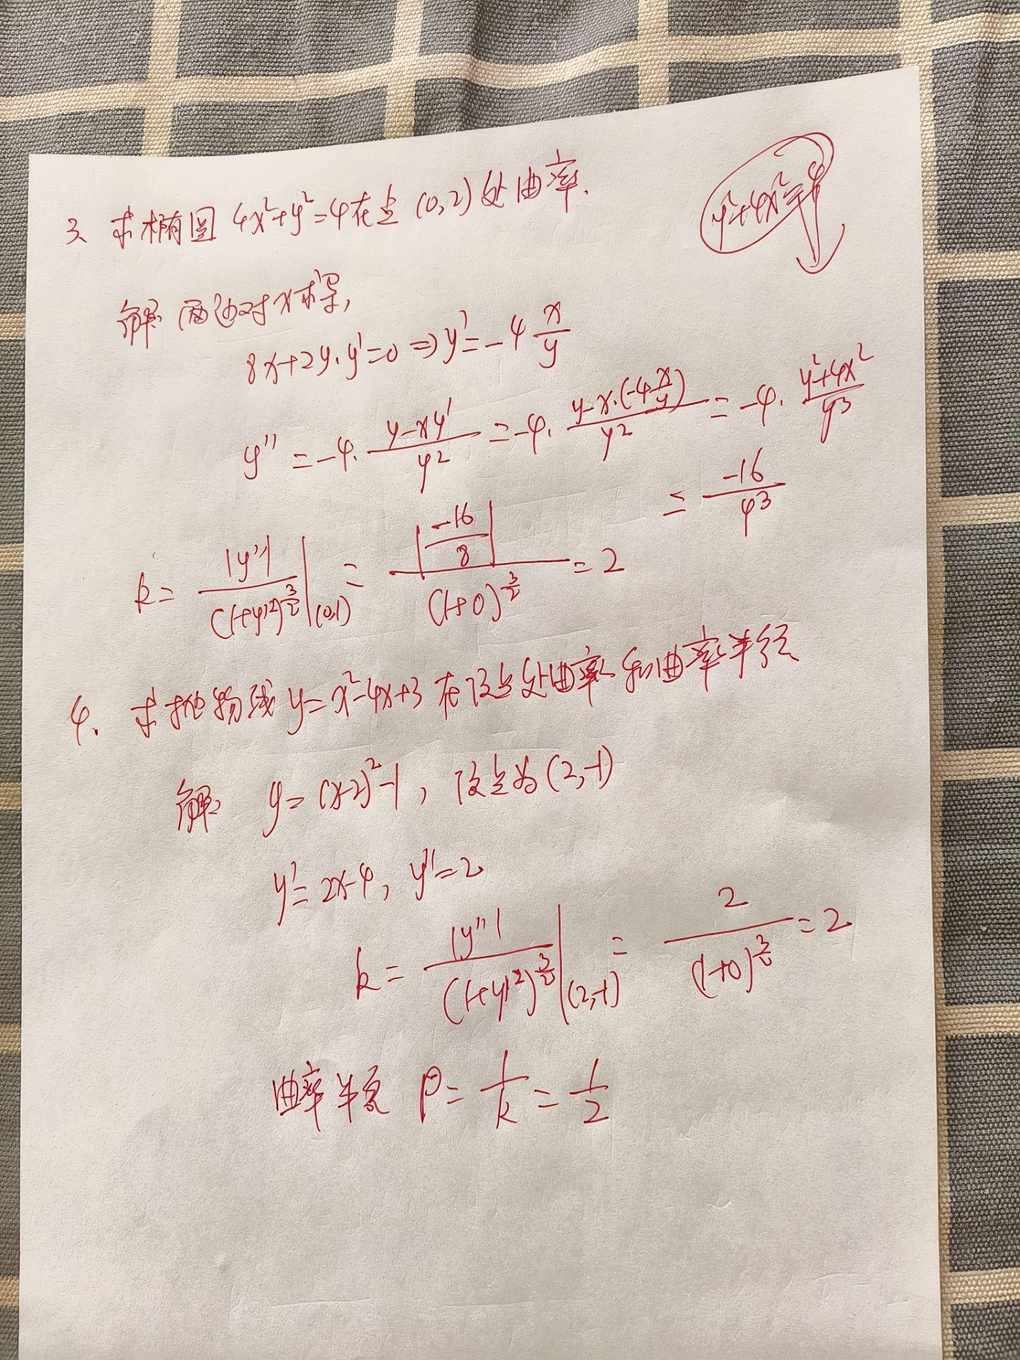 3、求椭圆 4x²+y²=4在点 (0,2) 处曲率.
y²+4x²=4
解: 两边对x求导,
8x+2y·y'=0 ⇒ y'=-4 x/y
y''=-4· (y-xy')/y² =-4· (y-x·(-4 x/y))/y² =-4· (y²+4x²)/y³
= -16/y³
k= |y''|/(1+y'²)^(3/2) |(0,1) = |-16/8|/(1+0)^(3/2) =2
4、求抛物线 y=x²-4x+3 在顶点处曲率和曲率半径
解: y=(x-2)²-1, 顶点为(2,-1)
y'=2x-4, y''=2
k= |y''|/(1+y'²)^(3/2) |(2,-1) = 2/(1+0)^(3/2) =2
曲率半径 ρ= 1/k = 1/2